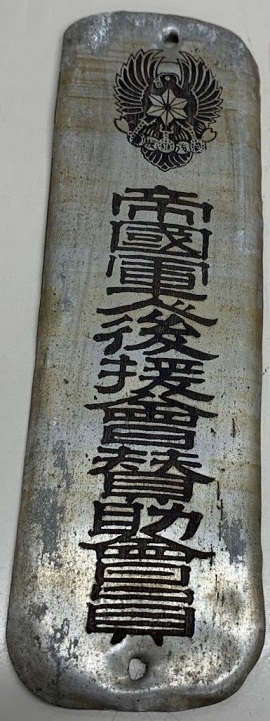 帝國軍人後援會賛助會員